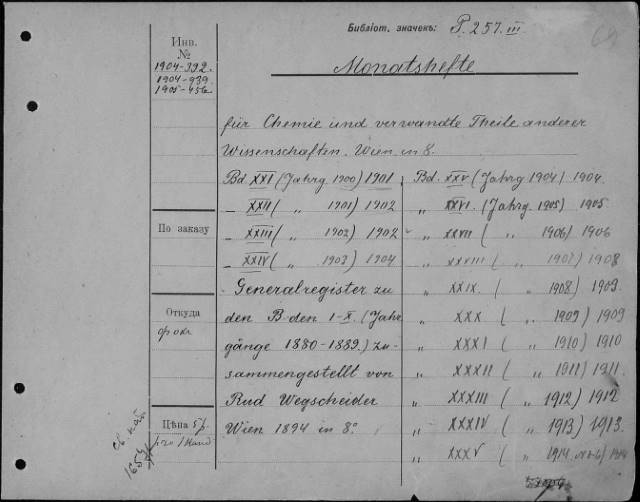 Библіот. значекъ: P. 257. III
Инв.
№
1904-392.
1904-939.
1905-456
Monatshefte
für Chemie und verwandte Theile anderer
Wissenschaften. Wien in 8.
Bd. XXI (Jahrg 1900) 1901
— XXII ( „ 1901) 1902
— XXIII ( „ 1902) 1902
— XXIV ( „ 1903) 1904
Generalregister zu
den B-den I-X. (Jahr
gänge 1880-1889.) zu-
sammengestellt von
Rud Wegscheider
Wien 1894 in 8°
Bd. XXV (Jahrg 1904) 1904.
„ XXVI. (Jahrg 1905) 1905
„ XXVII ( „ 1906) 1906
„ XXVIII ( „ 1907) 1908
„ XXIX. ( „ 1908) 1909.
„ XXX ( „ 1909) 1909
„ XXXI ( „ 1910) 1910
„ XXXII ( „ 1911) 1911.
„ XXXIII ( „ 1912) 1912
„ XXXIV ( „ 1913) 1913.
„ XXXV ( „ 1914
По заказу
Откуда
Цѣна
pro 1 Band